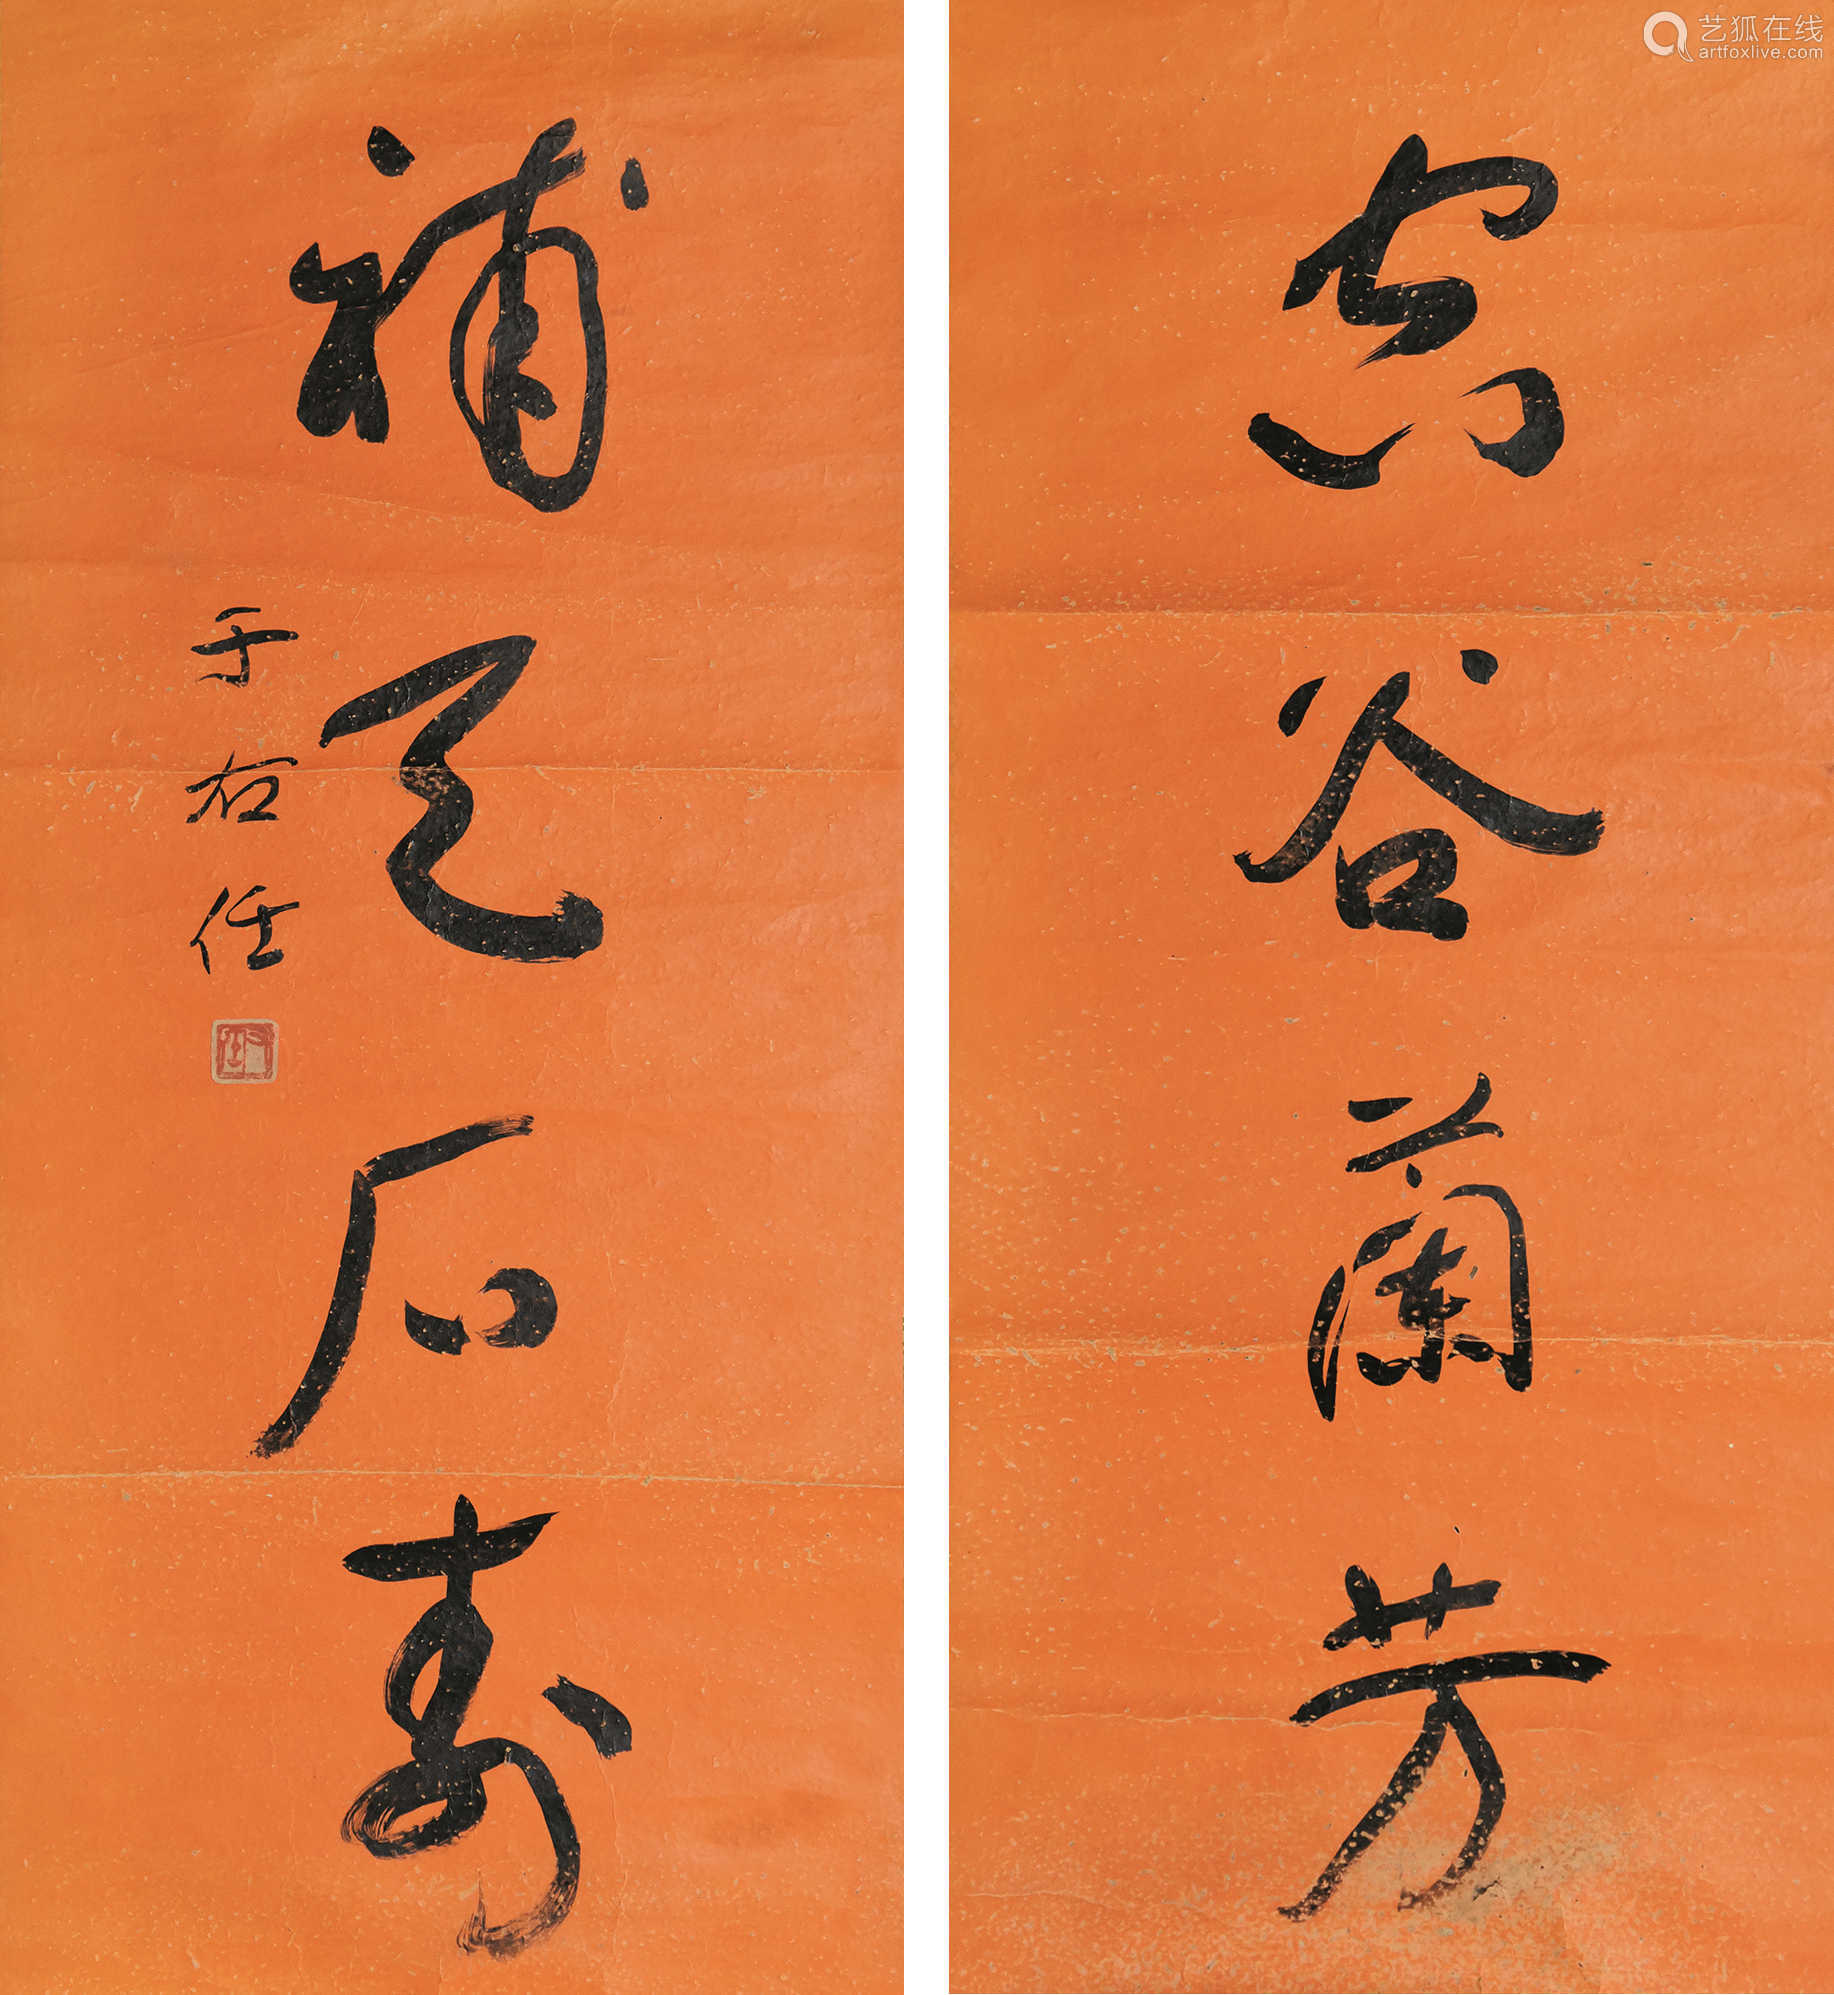 虛谷蘭芳
補天石壽
于右任
艺狐在线
artfoxlive.com